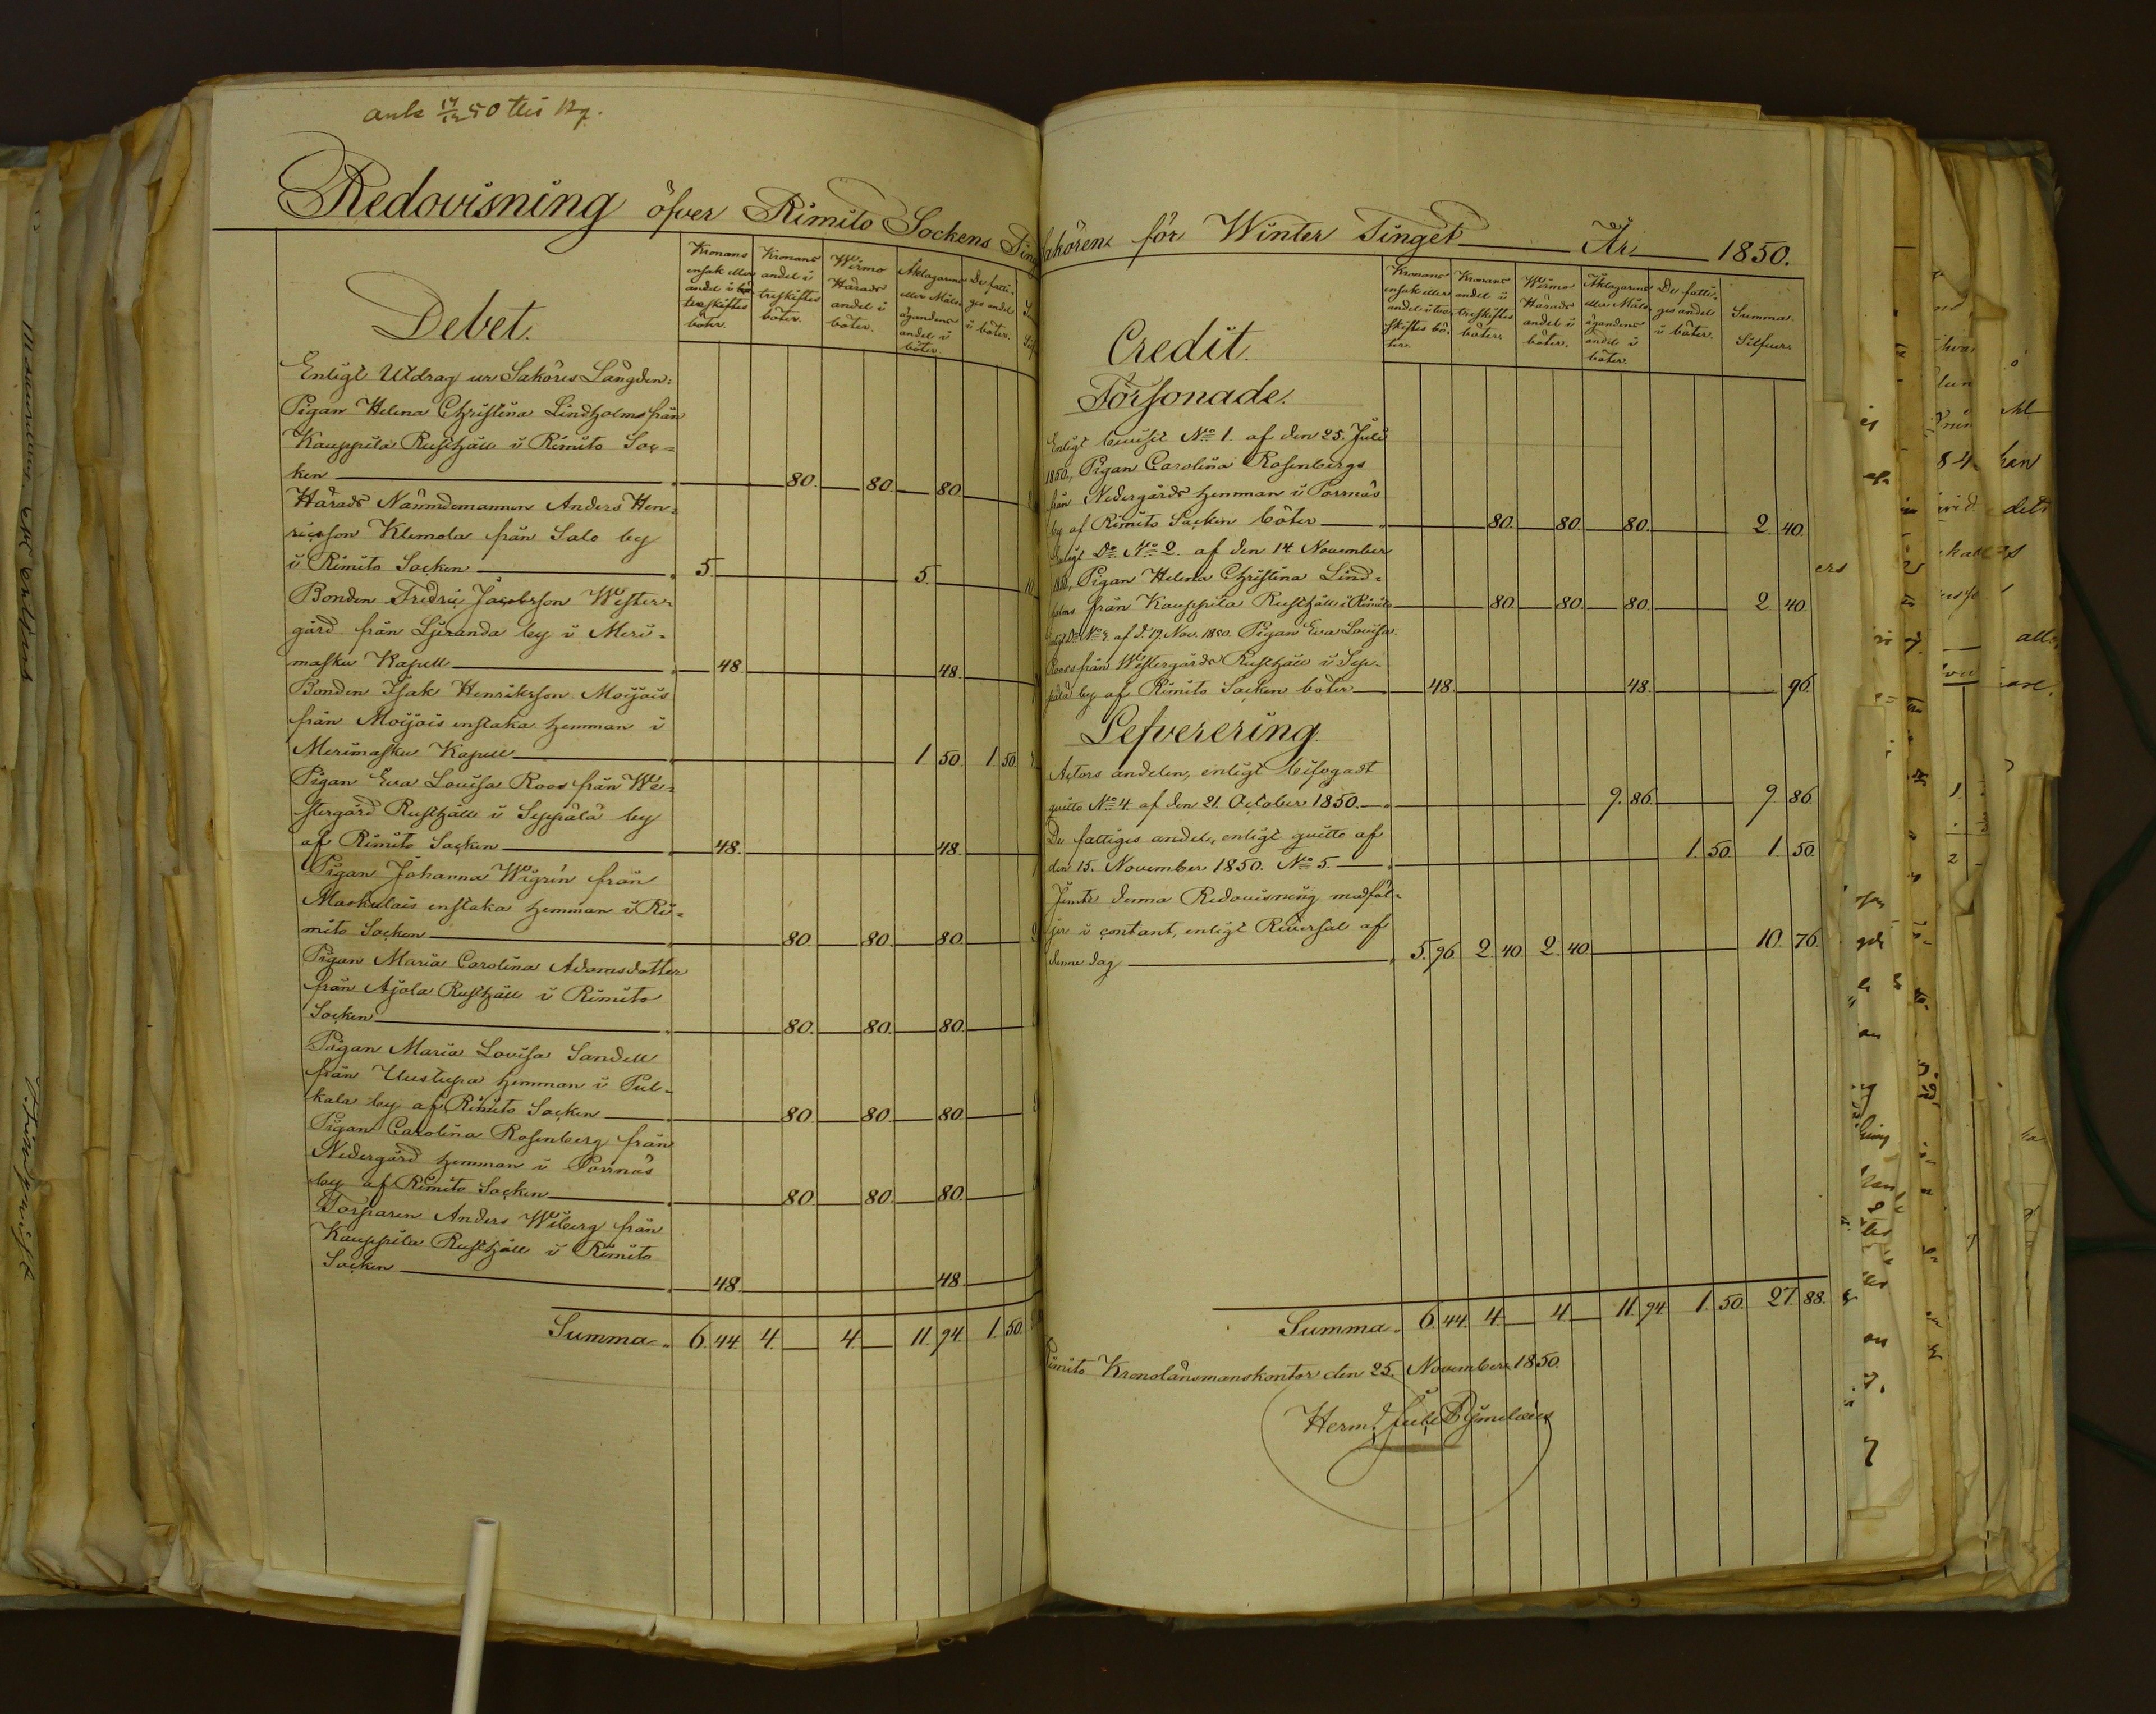 ank 17/12 50 till Kg.
Redovisning öfver Rimito Sockens Ting
Debet.
Kronans ensak eller andel i tveskiftes böter.
Kronans andel i treskiftes böter.
Wirmo Härads andel i böter.
Åklagarens eller Måls ägandens andel i böter.
De fattiges andel i böter.
Enligt Utdrag ur Saköres Längden:
Pigan Helena Christina Lindholms från
Kauppila Rusthåll i Rimito Soc=
ken 80. 80. 80.
Härads Nämndemannen Anders Hen=
ricsson Klemola från Salo by
i Rimito Socken 5. 5. 10
Bonden Fredric Jacobsson Wester=
gård från Ljuranda by i Meri=
masku Kapell 48. 48.
Bonden Isak Henriksson Moijois
från Moijois enstaka hemman i
Merimasku Kapell 1. 50. 1. 50.
Pigan Eva Lovisa Roos från We=
stergård Rusthåll i Seppälä by
af Rimito Socken 48. 48.
Pigan Johanna Wigrén från
Maskulais enstaka hemman i Ri=
mito Socken 80. 80. 80.
Pigan Maria Carolina Adamsdotter
från Ajola Rusthåll i Rimito
Socken 80. 80. 80.
Pigan Maria Lovisa Sandell
från Uustupa hemman i Pul=
kala by af Rimito Socken 80. 80. 80.
Pigan Carolina Rosenberg från
Nedergård hemman i Porrnäs
by af Rimito Socken 80. 80. 80.
Torparen Anders Wiberg från
Kauppila Rusthåll i Rimito
Socken 48. 48.
Summa 6. 44. 4. 4. 11. 94. 1. 50.
sakören för Winter Tinget År 1850.
Credit.
Kronans ensak eller andel i tveskiftes böter.
Kronans andel i treskiftes böter.
Wirmo Härads andel i böter.
Åklagarens eller Måls ägandens andel i böter.
De fattiges andel i böter.
Summa Silfver.
Försonade.
Enligt beviset No 1. af den 25. Juli
1850, Pigan Carolina Rosenbergs
från Nedergårds hemman i Porrnäs
by af Rimito Socken böter 80. 80. 80. 2. 40.
Enligt Do No 2. af den 14 November
1850, Pigan Helena Christina Lind=
holms från Kauppila Rusthåll i Rimito 80. 80. 80. 2. 40.
Enligt Do No 3. af d. 17. Nov. 1850. Pigan Eva Lovisa
Rooss från Westergårds Rusthåll i Sep=
pälä by af Rimito Socken böter 48. 48. 96.
Lefverering
Actors andelen, enligt bifogadt
quitto No 4. af den 21. October 1850. 9. 86. 9. 86.
De fattiges andel, enligt quitto af
den 15. November 1850. No 5. 1. 50. 1. 50.
Jemte denna Redovisning medföl=
jer i contant, enligt Reversal af
denne dag 5. 96. 2. 40. 2. 40. 10. 76.
Summa 6. 44. 4. 4. 11. 94. 1. 50. 27. 88.
Rimito Kronolänsmanskontor den 25. November 1850.
Herm.